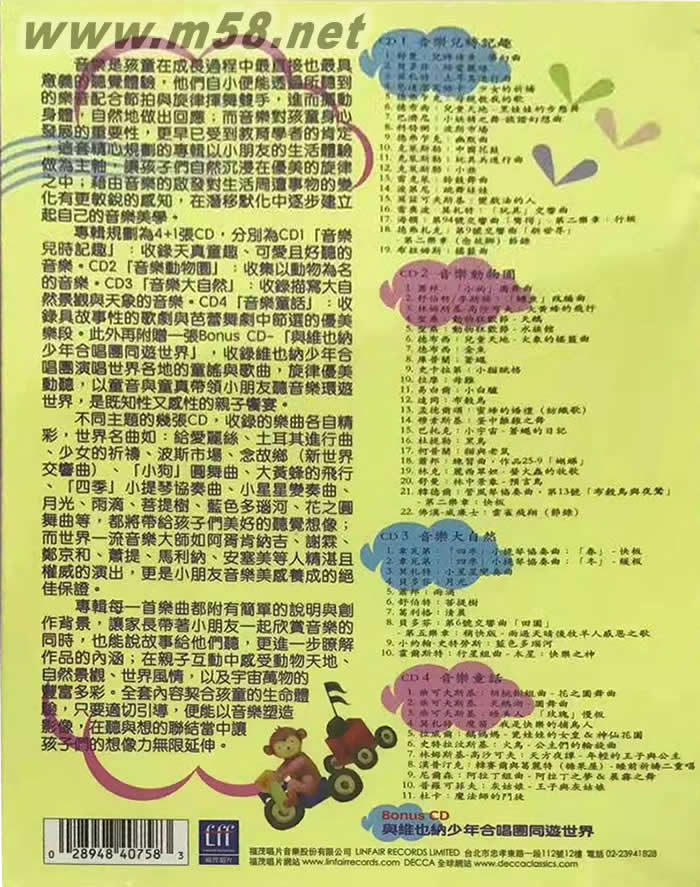 www.m58.net
音樂是孩童在成長過程中最直接也最具
意義的聽覺體驗，他們自小便能透過所聽到
的樂音配合節拍與旋律揮舞雙手，進而擺動
身體，自然地做出回應；而音樂對孩童身心
發展的重要性，更早已受到教育學者的肯定
。這套精心規劃的專輯以小朋友的生活體驗
做為主軸，讓孩子們自然沉浸在優美的旋律
之中；藉由音樂的啟發對生活周遭事物的變
化有更敏銳的感知，在潛移默化中逐步建立
起自己的音樂美學。
專輯規劃為4+1張CD，分別為CD1「音樂
兒時記趣」：收錄天真童趣、可愛且好聽的
音樂。CD2「音樂動物園」：收集以動物為名
的音樂。CD3「音樂大自然」：收錄描寫大自
然景觀與天象的音樂。CD4「音樂童話」：收
錄具故事性的歌劇與芭蕾舞劇中節選的優美
樂段。此外再附贈一張Bonus CD-「與維也納
少年合唱團同遊世界」，收錄維也納少年合
唱團演唱世界各地的童謠與歌曲，旋律優美
動聽，以童音與童真帶領小朋友聽音樂環遊
世界，是既知性又感性的親子饗宴。
不同主題的幾張CD，收錄的樂曲各自精
彩，世界名曲如：給愛麗絲、土耳其進行曲
、少女的祈禱、波斯市場、念故鄉（新世界
交響曲）、「小狗」圓舞曲、大黃蜂的飛行
、「四季」小提琴協奏曲、小星星變奏曲、
月光、雨滴、菩提樹、藍色多瑙河、花之圓
舞曲等，都將帶給孩子們美好的聽覺想像；
而世界一流音樂大師如阿胥肯納吉、謝霖、
鄭京和、蕭提、馬利納、安塞美等人精湛且
權威的演出，更是小朋友音樂美感養成的絕
佳保證。
專輯每一首樂曲都附有簡單的說明與創
作背景，讓家長帶著小朋友一起欣賞音樂的
同時，也能說故事給他們聽，更進一步瞭解
作品的內涵；在親子互動中感受動物天地、
自然景觀、世界風情，以及宇宙萬物的
豐富多彩。全套內容契合孩童的生命體
驗，只要適切引導，便能以音樂塑造
影像，在聽與想的聯結當中讓
孩子們的想像力無限延伸。
CD 1 音樂兒時記趣
6. 德布西：兒童天地-黑娃娃的步態舞
8. 科特街：波斯市場
9. 德弗乍克：幽默曲
10. 克萊斯勒：中國花鼓
11. 克萊斯勒：玩具兵進行曲
16. 雷奧波．莫札特：「玩具」交響曲
17. 海頓：第94號交響曲「驚愕」-第二樂章：行板
18. 德弗札克：第9號交響曲「新世界」
-第二樂章（念故鄉）節錄
19. 布拉姆斯：搖籃曲
CD 2 音樂動物園
1. 蕭邦：「小狗」圓舞曲
4. 聖桑：動物狂歡節-天鵝
5. 聖桑：動物狂歡節-水族館
6. 德布西：兒童天地-大象的搖籃曲
7. 德布西：金魚
9. 史卡拉第：小貓賦格
10. 拉摩：母雞
11. 易白爾：小白驢
12. 達岡：布穀鳥
13. 孟德爾頌：蜜蜂的婚禮（紡織歌）
15. 巴托克：小宇宙-蒼蠅的日記
17. 柯普蘭：貓與老鼠
18. 蕭邦：練習曲，作品25-9「蝴蝶」
20. 舒曼：林中景象-預言鳥
21. 韓德爾：管風琴協奏曲，第13號「布穀鳥與夜鶯」
-第二樂章：快板
22. 佛漢-威廉士：雲雀飛翔（節錄）
CD 3 音樂大自然
1. 韋瓦第：「四季」小提琴協奏曲：「春」-快板
2. 韋瓦第：「四季」小提琴協奏曲：「冬」-緩板
3. 莫札特：小星星變奏曲
4. 貝多芬：月光
5. 蕭邦：雨滴
6. 舒伯特：菩提樹
7. 葛利格：清晨
8. 貝多芬：第6號交響曲「田園」
-第五樂章：稍快板-雨過天晴後牧羊人感恩之歌
9. 小約翰·史特勞斯：藍色多瑙河
10. 霍爾斯特：行星組曲-木星：快樂之神
CD 4 音樂童話
1. 柴可夫斯基：胡桃鉗組曲-花之圓舞曲
2. 柴可夫斯基：天鵝湖-圓舞曲
3. 柴可夫斯基：睡美人-「玫瑰」慢板
4. 莫札特：魔笛-我是快樂的捕鳥人
5. 拉威爾：鵝媽媽-瓷娃娃的女皇 & 神仙花園
6. 史特拉汶斯基：火鳥-公主們的輪旋曲
7. 林姆斯基-高沙可夫：天方夜譚-年輕的王子與公主
8. 漢普汀克：韓賽爾與葛麗特（糖果屋）-睡前祈禱二重唱
9. 尼爾森：阿拉丁組曲-阿拉丁之夢 & 晨霧之舞
10. 普羅可菲夫：灰姑娘-王子與灰姑娘
11. 杜卡：魔法師的門徒
Bonus CD
與維也納少年合唱團同遊世界
0 28948 40758 3
Lff
福茂唱片
福茂唱片音樂股份有限公司 LINFAIR RECORDS LIMITED 台北市忠孝東路一段112號12樓 電話 02-23941828
福茂唱片網站 www.linfairrecords.com DECCA 全球網站 www.deccaclassics.com